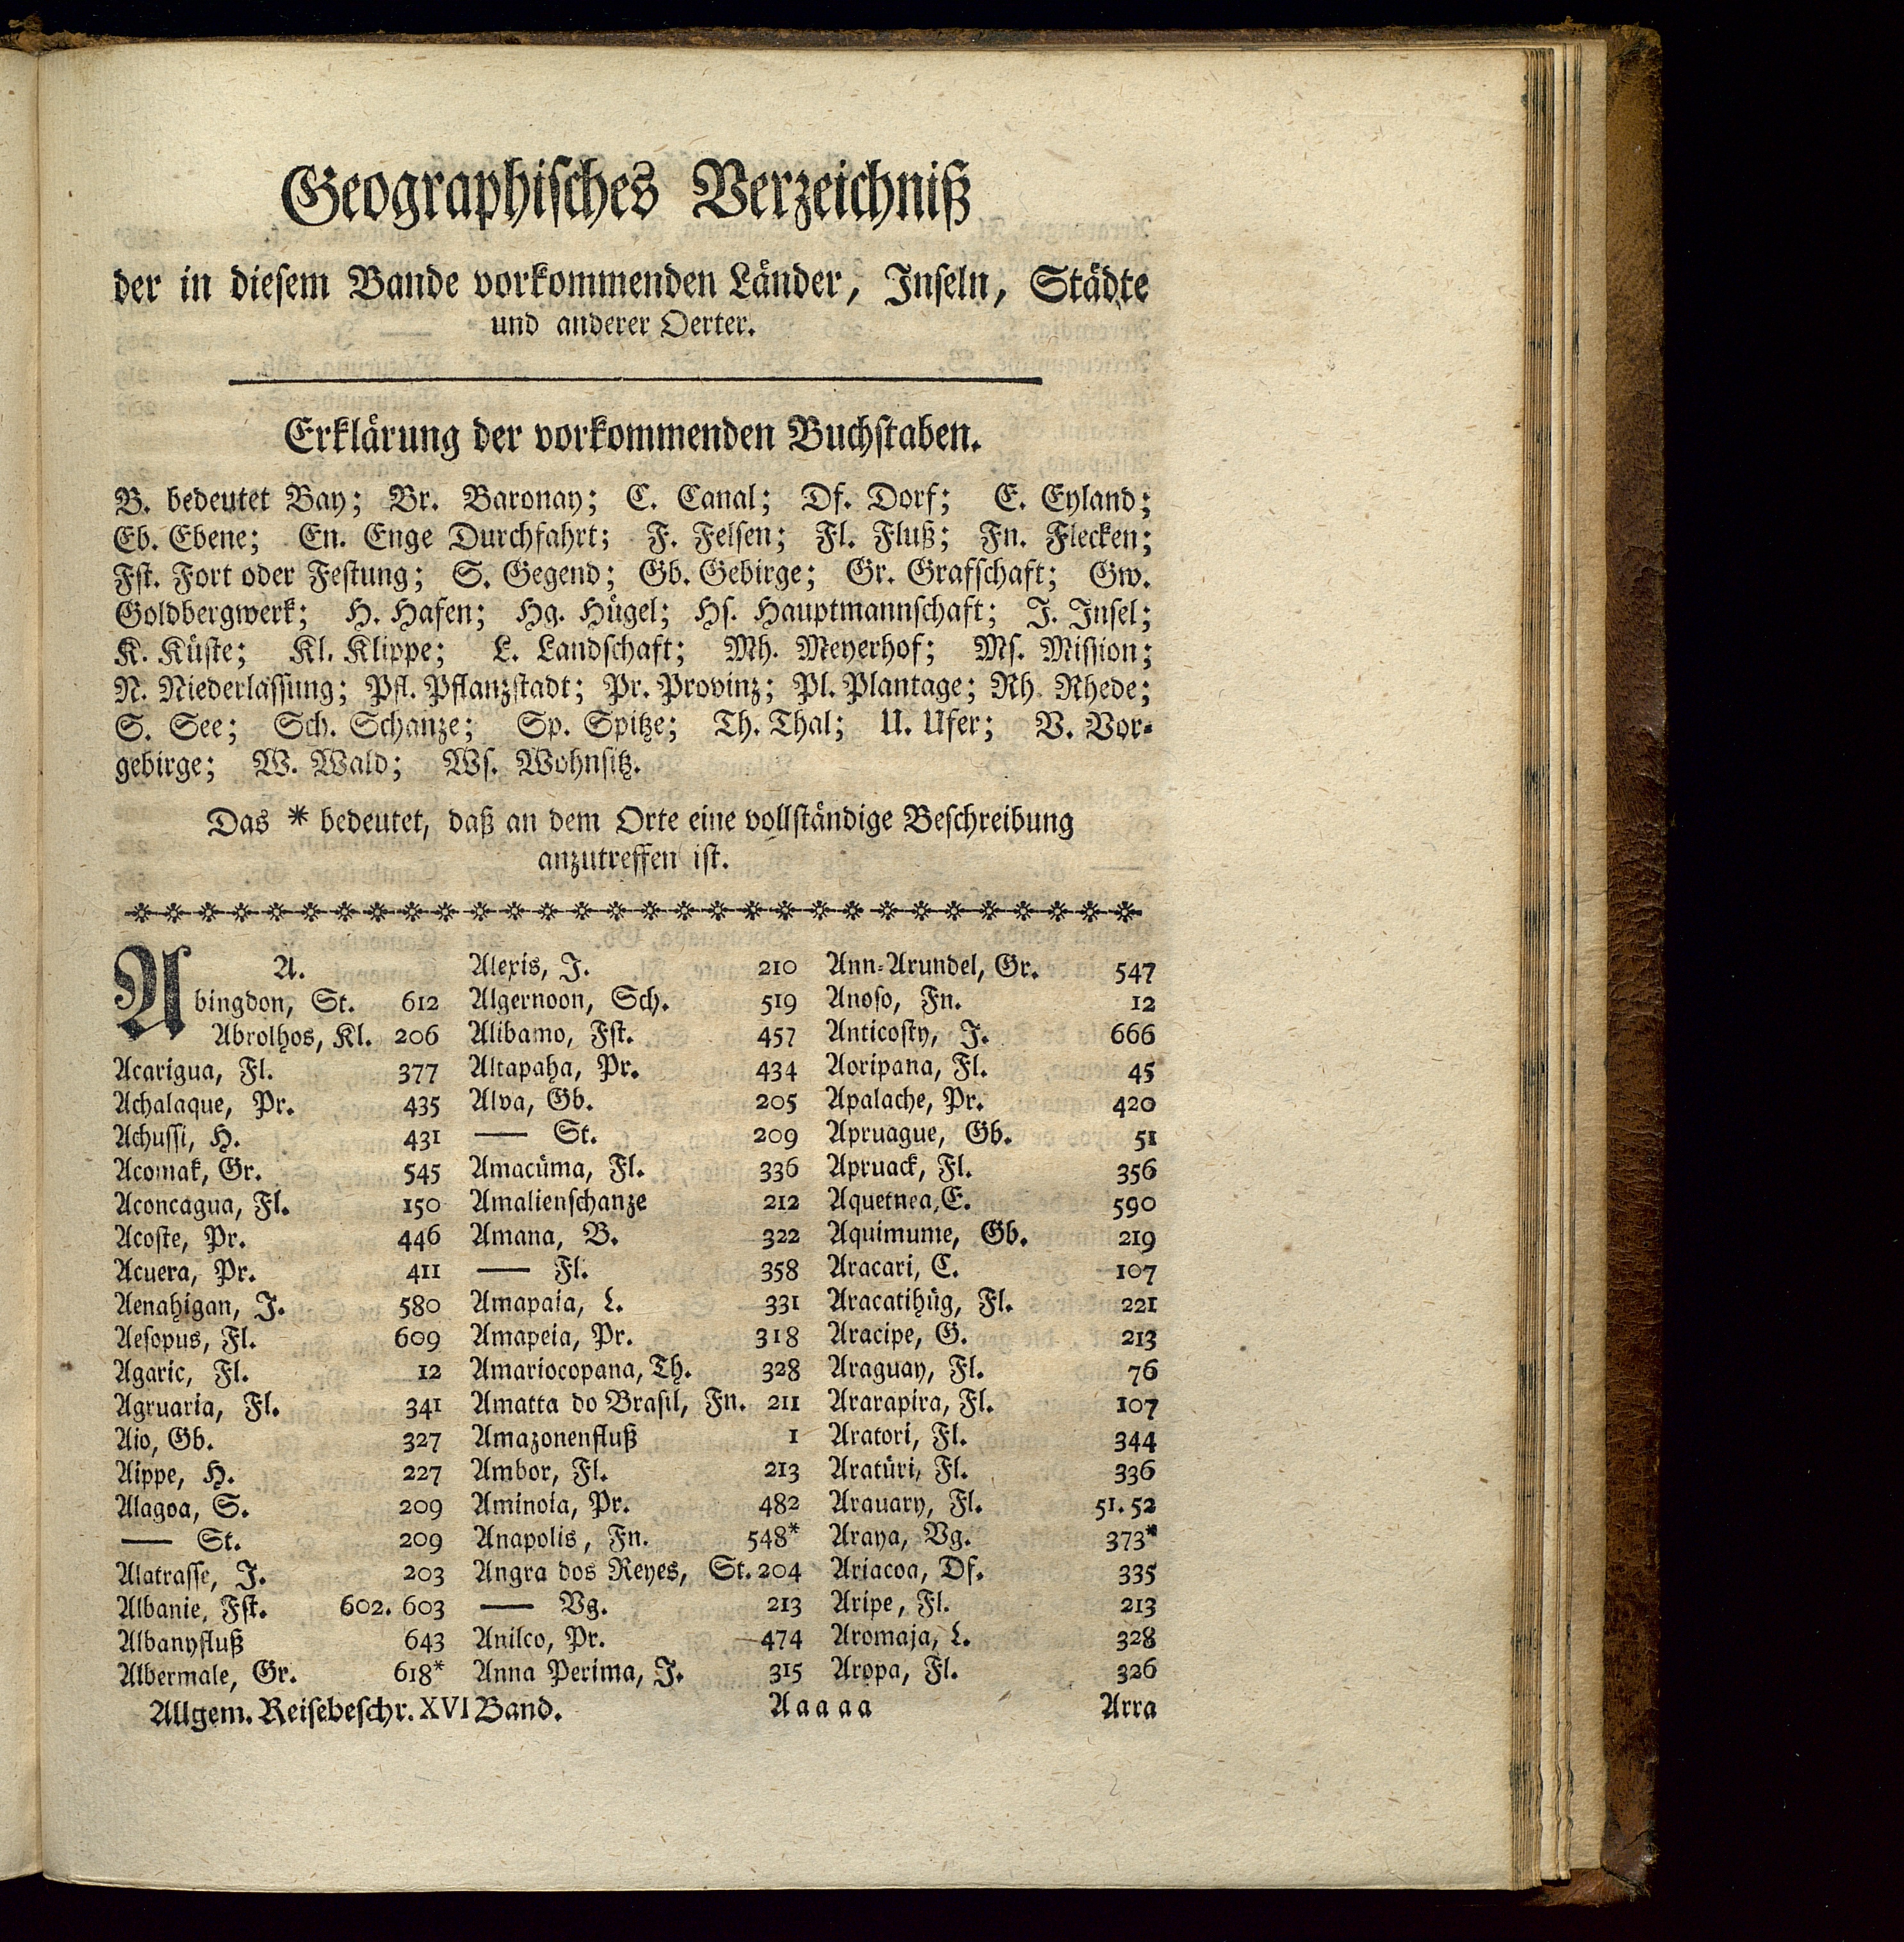 Geographisches Verzeichniß
der in diesem Bande vorkommenden Länder, Inseln, Städte
und anderer Oerter.
Erklärung der vorkommenden Buchstaben.
B. bedeutet Bay; Br. Baronay; C. Canal; Df. Dorf; E. Eyland;
Eb. Ebene; En. Enge Durchfahrt; F. Felsen; Fl. Fluß; Fn. Flecken;
Fst. Fort oder Festung; G. Gegend; Gb. Gebirge; Gr. Grafschaft; Gw.
Goldbergwerk; H. Hafen; Hg. Hügel; Hs. Hauptmannschaft; J. Insel;
K. Küste; Kl. Klippe; L. Landschaft; Mh. Meyerhof; Ms. Mission;
N. Niederlassung; Pfl. Pflanzstadt; Pr. Provinz; Pl. Plantage; Rh. Rhede;
S. See; Sch. Schanze; Sp. Spitze; Th. Thal; U. Ufer; V. Vor-
gebirge; W. Wald; Ws. Wohnsitz.
Das * bedeutet, daß an dem Orte eine vollständige Beschreibung
anzutreffen ist.
A.
Abingdon, St. 612
Abrolhos, Kl. 206
Acarigua, Fl. 377
Achalaque, Pr. 435
Achussi, H. 431
Acomak, Gr. 545
Aconcagua, Fl. 150
Acoste, Pr. 446
Acuera, Pr. 411
Aenahigan, J. 580
Aesopus, Fl. 609
Agaric, Fl. 12
Agruaria, Fl. 341
Aio, Gb. 327
Aippe, H. 227
Alagoa, S. 209
—— St. 209
Alatrasse, J. 203
Albanie, Fst. 602. 603
Albanyfluß 643
Albermale, Gr. 618*
Alexis, J. 210
Algernoon, Sch. 519
Alibamo, Fst. 457
Altapaha, Pr. 434
Alva, Gb. 205
—— St. 209
Amacüma, Fl. 336
Amalienschanze 212
Amana, B. 322
—— Fl. 358
Amapaia, L. 331
Amapeia, Pr. 318
Amariocopana, Th. 328
Amatta do Brasil, Fn. 211
Amazonenfluß 1
Ambor, Fl. 213
Aminoia, Pr. 482
Anapolis, Fn. 548*
Angra dos Reyes, St. 204
—— Vg. 213
Anilco, Pr. 474
Anna Perima, J. 315
Ann-Arundel, Gr. 547
Anoso, Fn. 12
Anticosty, J. 666
Aoripana, Fl. 45
Apalache, Pr. 420
Apruague, Gb. 51
Apruack, Fl. 356
Aquetnea, E. 590
Aquimume, Gb. 219
Aracari, C. 107
Aracatihüg, Fl. 221
Aracipe, G. 213
Araguay, Fl. 76
Ararapira, Fl. 107
Aratori, Fl. 344
Aratüri, Fl. 336
Arauary, Fl. 51. 52
Araya, Vg. 373*
Ariacoa, Df. 335
Aripe, Fl. 213
Aromaja, L. 328
Aropa, Fl. 326
Allgem. Reisebeschr. XVI Band. Aaaaa Arra